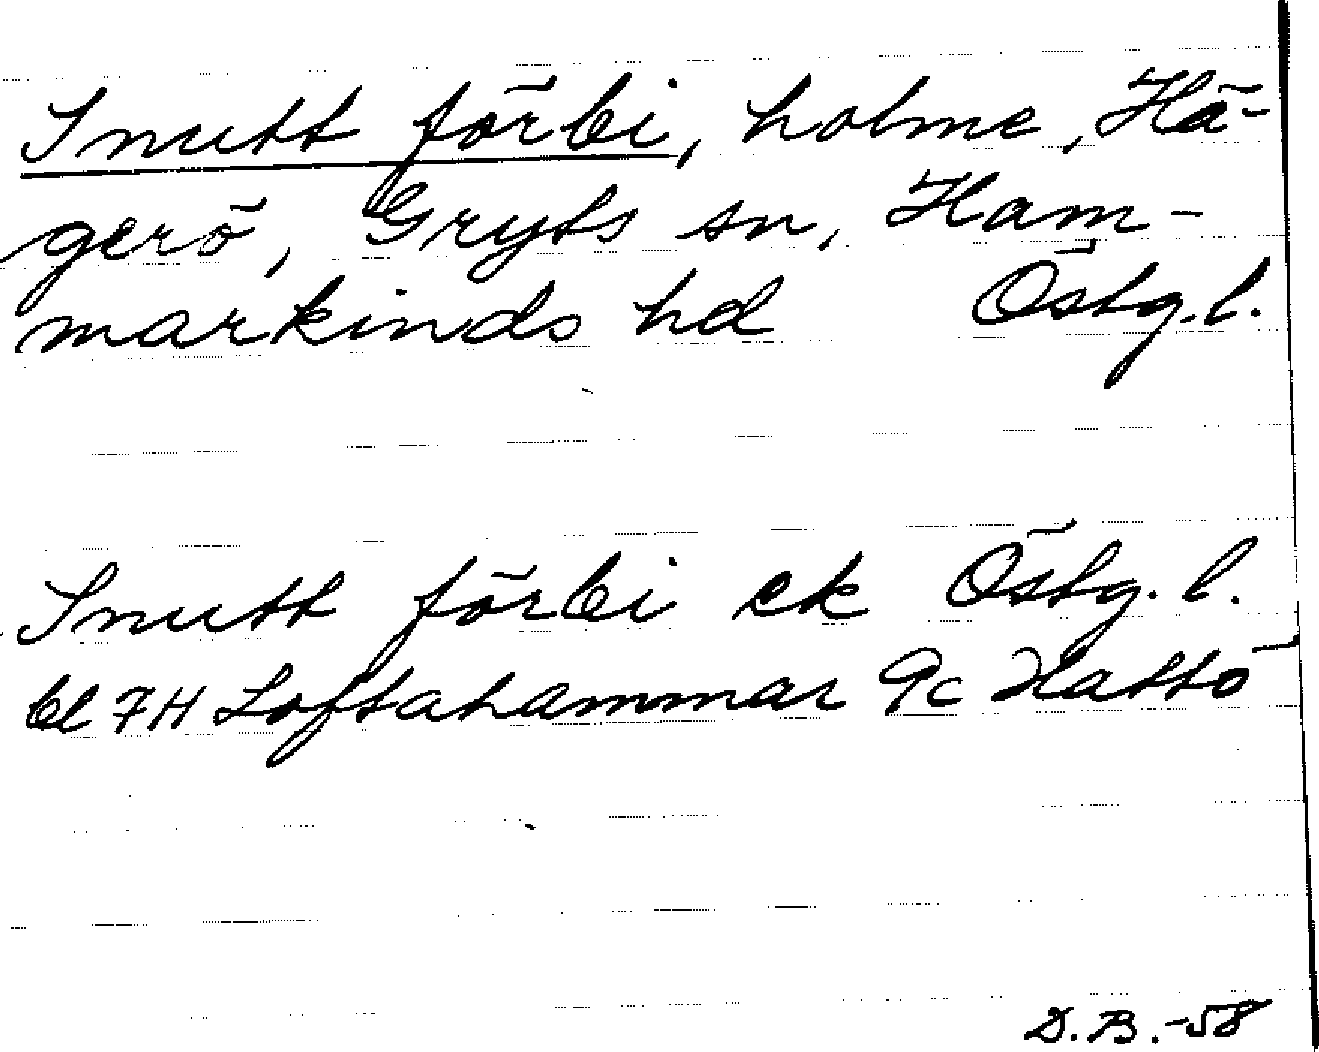 Snutt förbi, holme, Hä-
gerö, Gryts sn, Ham-
markinds hd Östg.l.
Snutt förbi ek Östg.l.
bl 7H Loftahammar 9c Hattö
D.B.-58